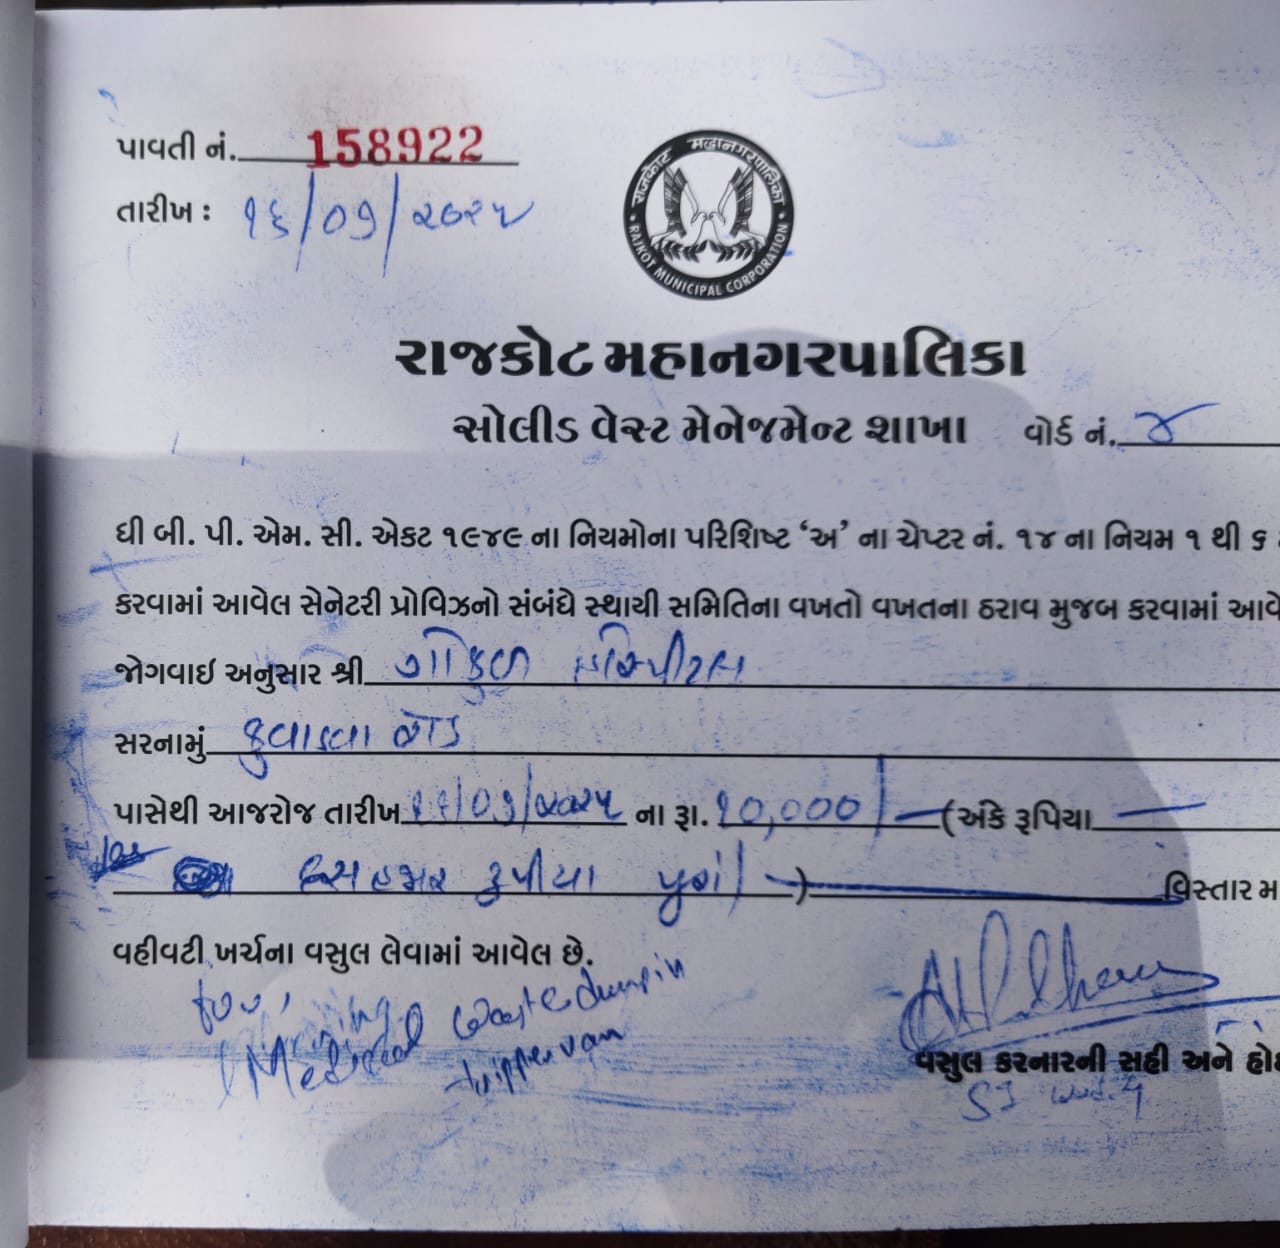 પાવતી નં. 158922
તારીખ : ૧૬/૦૭/૨૦૨૫
રાજકોટ મહાનગરપાલિકા
RAJKOT MUNICIPAL CORPORATION
રાજકોટ મહાનગરપાલિકા
સોલીડ વેસ્ટ મેનેજમેન્ટ શાખા વોર્ડ નં. ૪
ધી બી. પી. એમ. સી. એકટ ૧૯૪૯ ના નિયમોના પરિશિષ્ટ ‘અ’ ના ચેપ્ટર નં. ૧૪ ના નિયમ ૧ થી ૬
કરવામાં આવેલ સેનેટરી પ્રોવિઝનો સંબંધે સ્થાયી સમિતિના વખતો વખતના ઠરાવ મુજબ કરવામાં આવે
જોગવાઇ અનુસાર શ્રી ગોકુળ હોસ્પીટલ
સરનામું કુવાડવા રોડ
પાસેથી આજરોજ તારીખ ૧૬/૦૭/૨૦૨૫ ના રૂા. ૧૦,૦૦૦/- (અંકે રૂપિયા
દસ હજાર રૂપીયા પુરા/-) વિસ્તાર મ
વહીવટી ખર્ચના વસુલ લેવામાં આવેલ છે.
for,
Medical waste dumpin
tripper van
વસુલ કરનારની સહી અને હોદ
SI